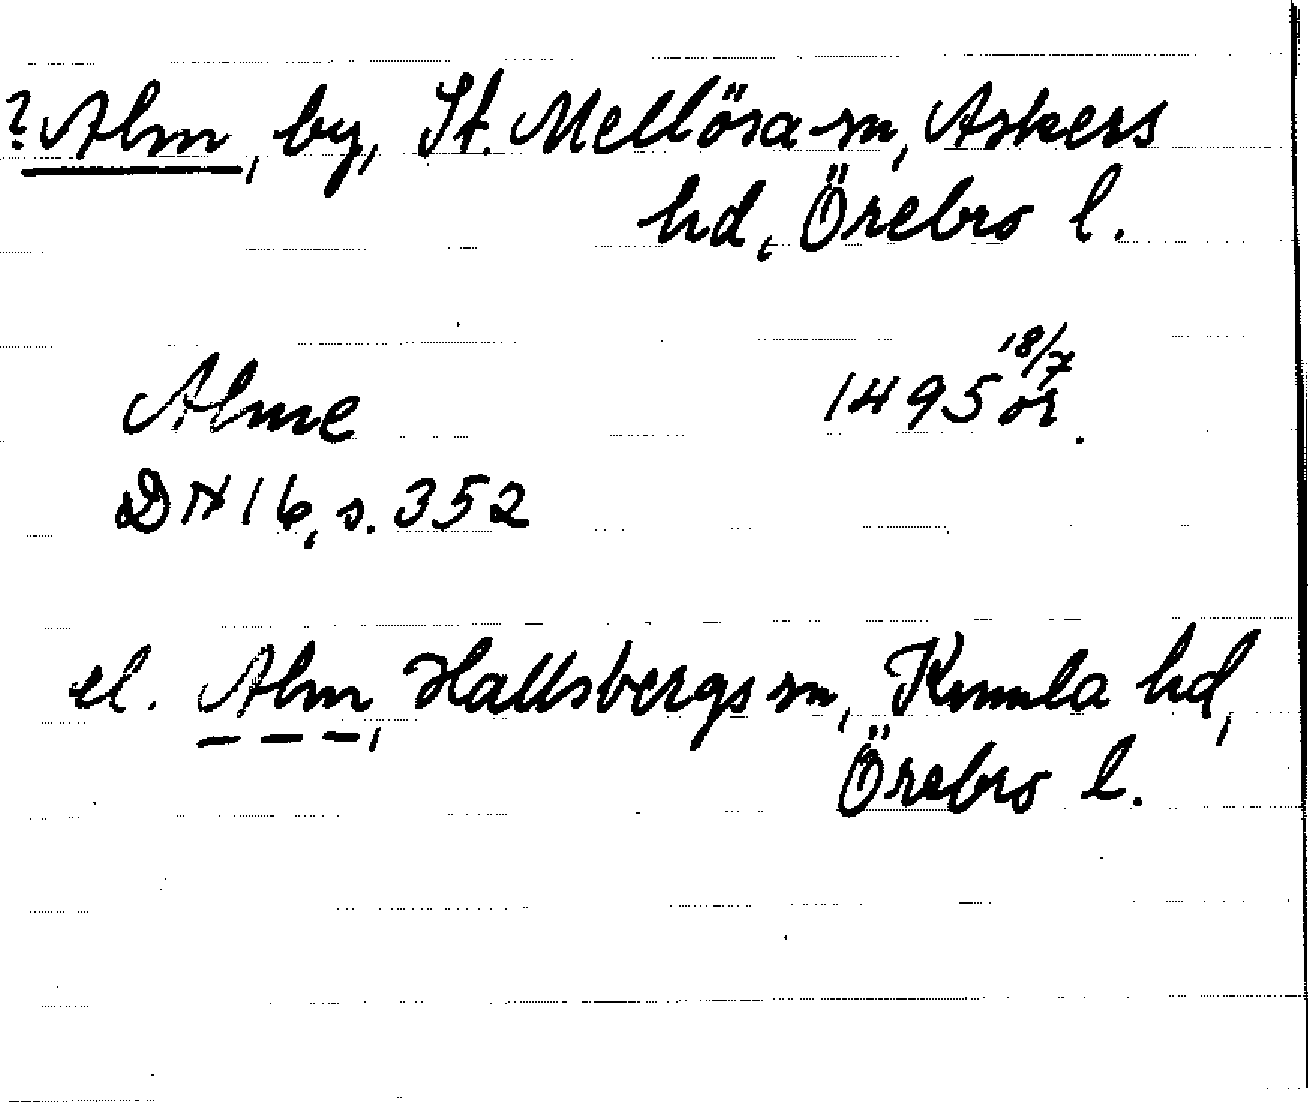 ? Alm, by, St. Mellösa sn, Askers
hd, Örebro l.
Alme 1495 18/7 or.
DN 16, s. 352
el. Alm, Hallsbergs sn, Kumla hd,
Örebro l.